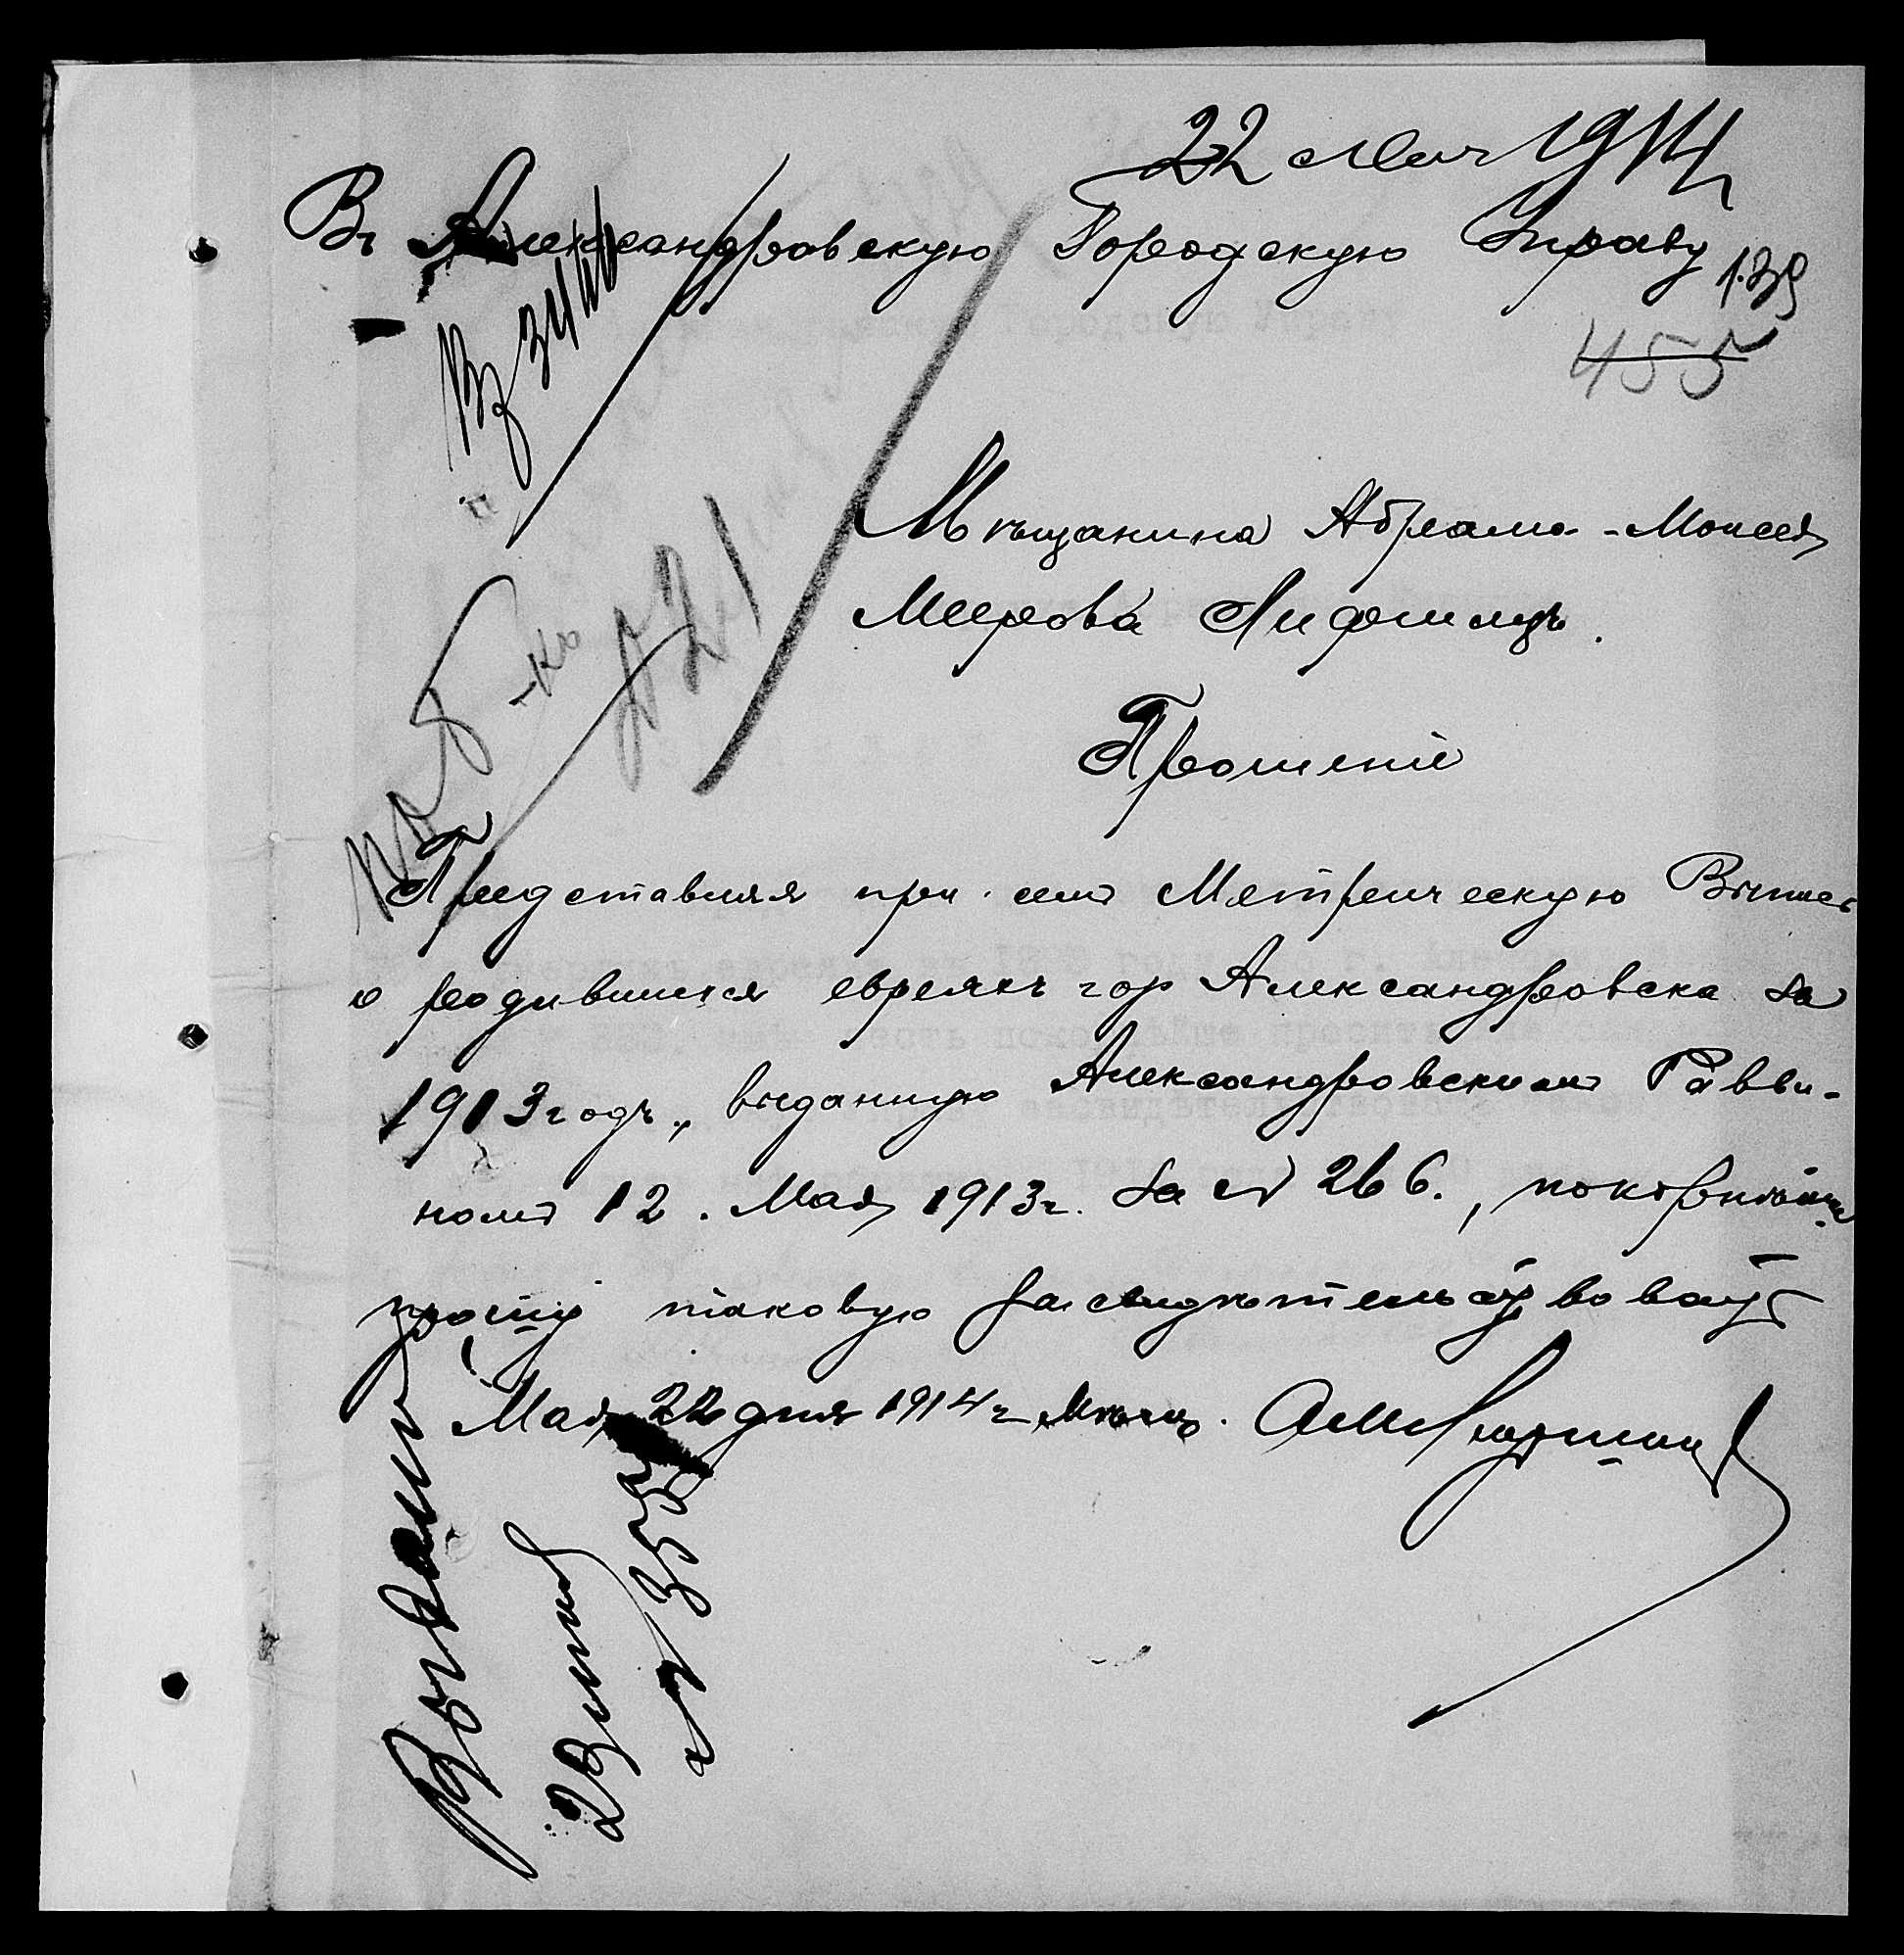 22 Мая 1914
Въ Александровскую Городскую Управу
139
455
Вх 3444
Мѣщанина Абрама-Моисея
Меерова Лифшицъ.
№ 21
Прошеніе
Представляя при семъ Метрическую Выпись
о родившихся евреяхъ гор Александровска за
1913 годъ, выданную Александровскимъ Равви-
номъ 12. Мая 1913 г. за № 266., покорнѣйше
прошу таковую засвидѣтельствовать
Мая 22 дня 1914 г. Мѣщ. АМ Лифшицъ